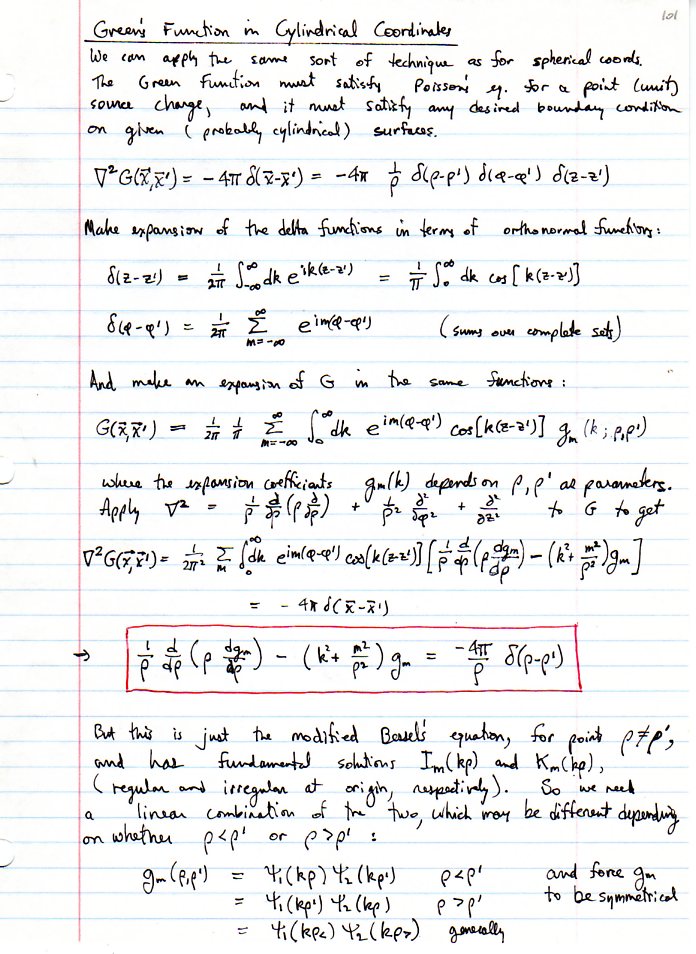 101
Green's Function in Cylindrical Coordinates
We can apply the same sort of technique as for spherical coords.
The Green Function must satisfy Poisson's eq. for a point (unit)
source charge, and it must satisfy any desired boundary condition
on given (probably cylindrical) surfaces.
∇²G(x⃗,x⃗') = -4π δ(x⃗-x⃗') = -4π 1/ρ δ(ρ-ρ') δ(φ-φ') δ(z-z')
Make expansion of the delta functions in terms of orthonormal functions:
δ(z-z') = 1/2π ∫_{-∞}^{∞} dk e^{ik(z-z')} = 1/π ∫_0^∞ dk cos[k(z-z')]
δ(φ-φ') = 1/2π Σ_{m=-∞}^{∞} e^{im(φ-φ')} (sums over complete sets)
And make an expansion of G in the same functions:
G(x⃗,x⃗') = 1/2π 1/π Σ_{m=-∞}^{∞} ∫_0^∞ dk e^{im(φ-φ')} cos[k(z-z')] g_m(k; ρ,ρ')
where the expansion coefficients g_m(k) depends on ρ, ρ' as parameters.
Apply ∇² = 1/ρ ∂/∂ρ (ρ ∂/∂ρ) + 1/ρ² ∂²/∂φ² + ∂²/∂z² to G to get
∇²G(x⃗,x⃗') = 1/2π² Σ_m ∫_0^∞ dk e^{im(φ-φ')} cos[k(z-z')] [1/ρ d/dρ (ρ dg_m/dρ) - (k² + m²/ρ²) g_m]
= -4π δ(x⃗-x⃗')
→ 1/ρ d/dρ (ρ dg_m/dρ) - (k² + m²/ρ²) g_m = -4π/ρ δ(ρ-ρ')
But this is just the modified Bessel's equation, for points ρ≠ρ',
and has fundamental solutions I_m(kρ) and K_m(kρ),
(regular and irregular at origin, respectively). So we need
a linear combination of the two, which may be different depending
on whether ρ<ρ' or ρ>ρ' :
g_m(ρ,ρ') = Ψ₁(kρ) Ψ₂(kρ') ρ<ρ' and force g_m
= Ψ₁(kρ') Ψ₂(kρ) ρ>ρ' to be symmetrical
= Ψ₁(kρ<) Ψ₂(kρ>) generally